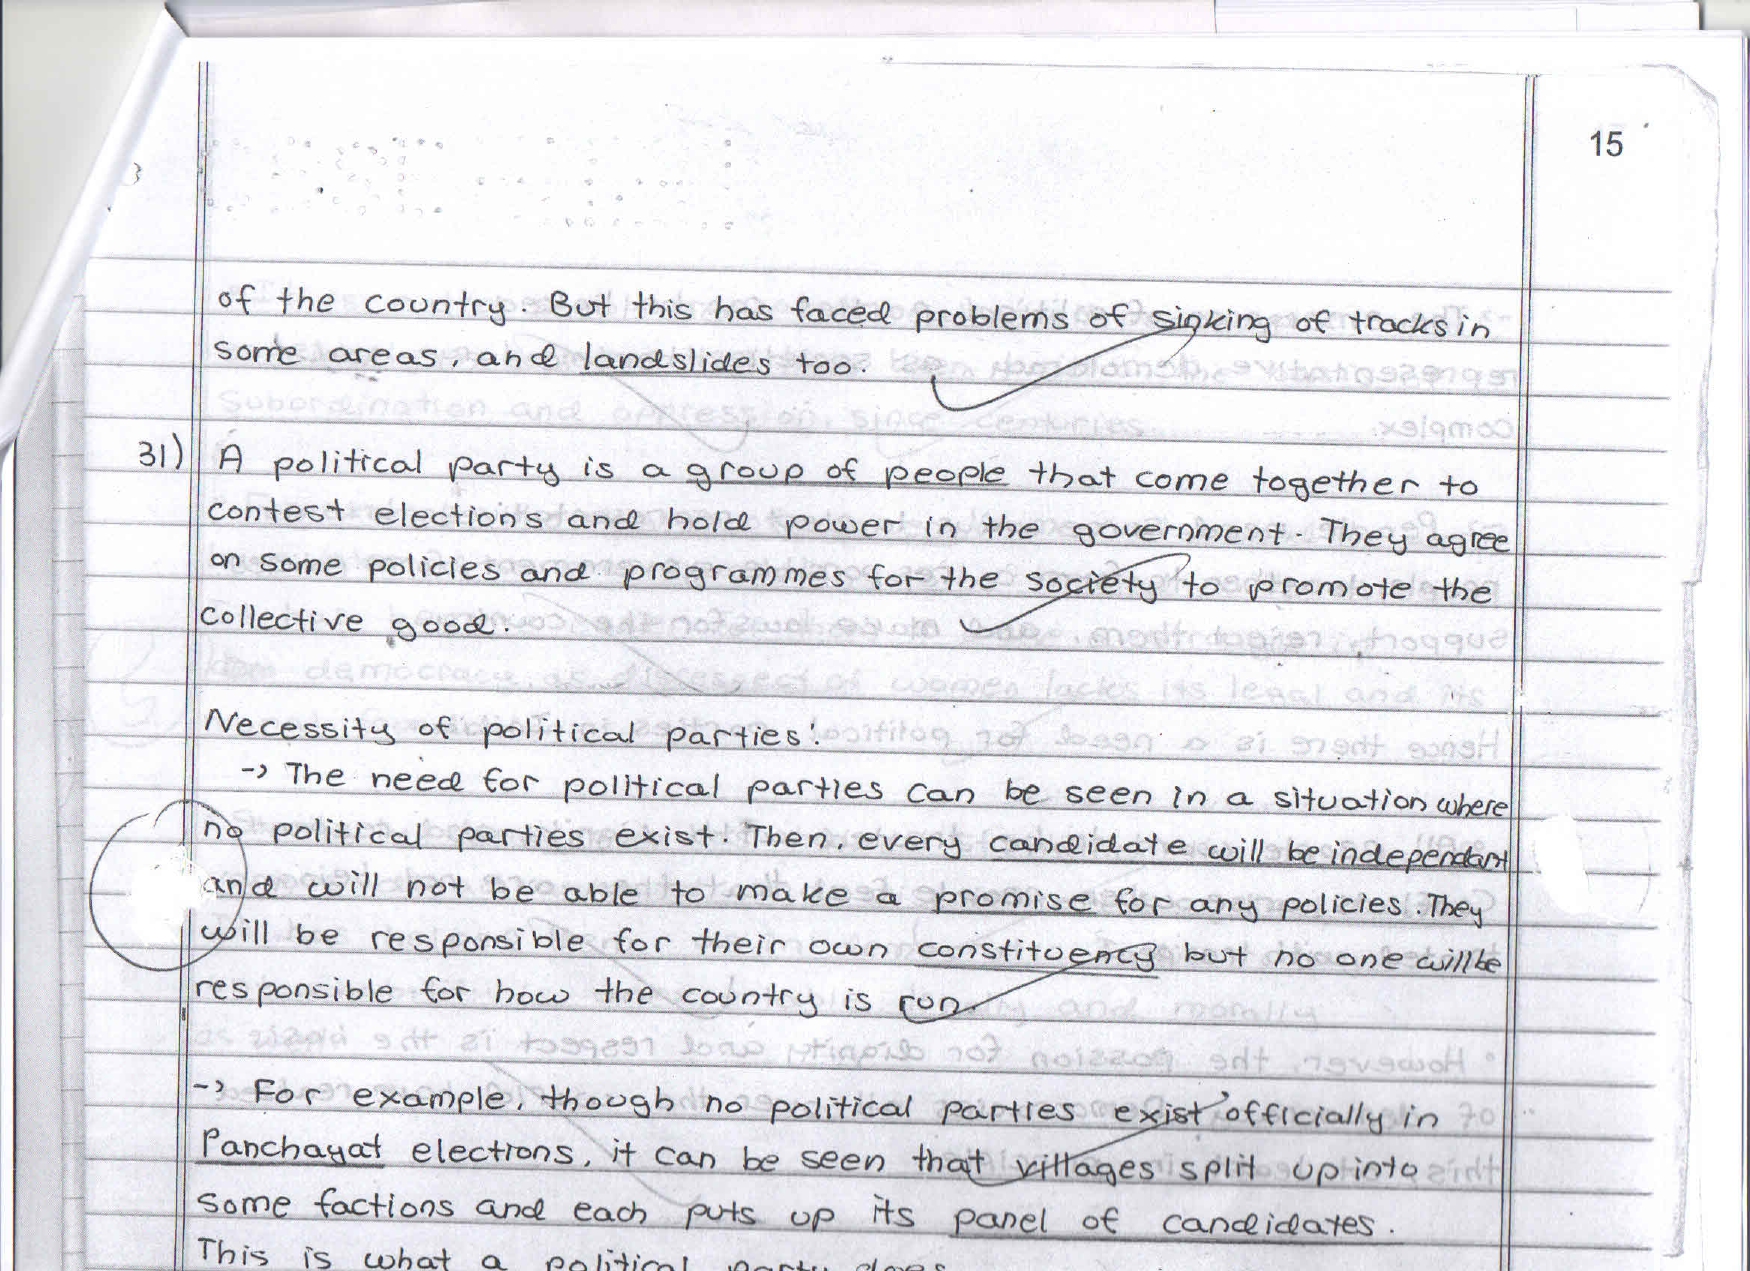 15
of the country. But this has faced problems of sinking of tracks in
some areas, and landslides too.
31) A political party is a group of people that come together to
contest elections and hold power in the government. They agree
on some policies and programmes for the society to promote the
collective good.
Necessity of political parties:
-> The need for political parties can be seen in a situation where
no political parties exist. Then, every candidate will be independant
and will not be able to make a promise for any policies. They
will be responsible for their own constituency but no one will be
responsible for how the country is run.
-> For example, though no political parties exist officially in
Panchayat elections, it can be seen that villages split up into
some factions and each puts up its panel of candidates.
This is what a political party does